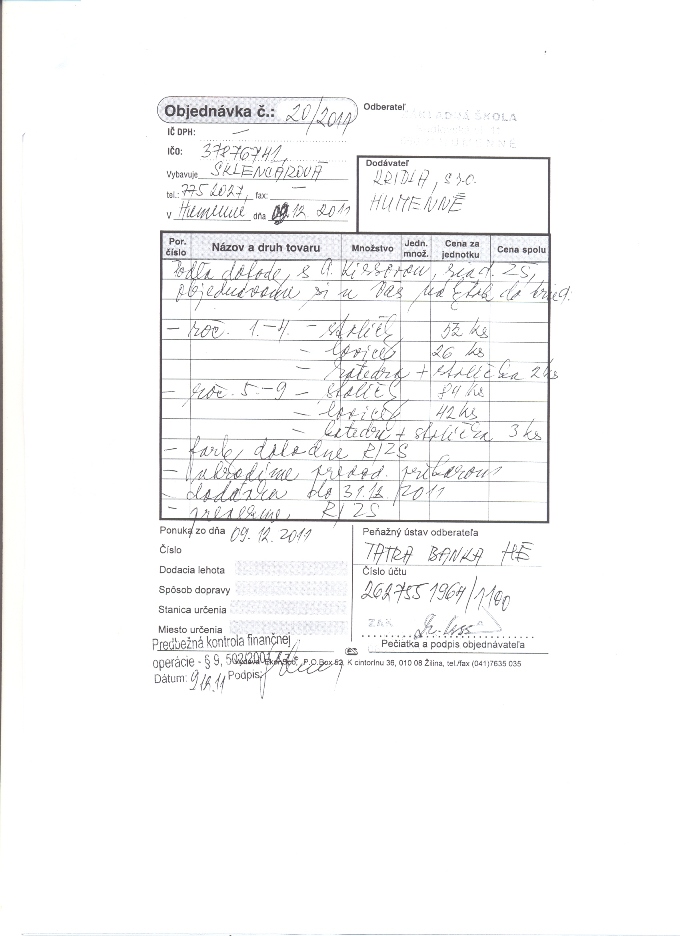 Objednávka č.: 20/2011
Odberateľ ZÁKLADNÁ ŠKOLA
IČ DPH: —
IČO: 37876741,
Vybavuje SKLENČÁROVÁ
tel.: 775 2027, fax: —
V Humenné dňa 09.12 2011
Dodávateľ
s.r.o.
HUMENNÉ
Por. číslo Názov a druh tovaru Množstvo Jedn. množ. Cena za jednotku Cena spolu
Podľa dohody s riad. ZŠ,
objednávame si u Vás nábytok do tried.
- roč. 1.-4. - stoličky 52 ks
- lavice 26 ks
- katedra + stolička 2 ks
- roč. 5.-9 - stoličky 84 ks
- lavice 42 ks
- katedra + stolička 3 ks
- farby dohodne R/ZŠ
- uhradíme prevod. príkazom
- dodávka do 31.12. 2011
- prevezme R/ZŠ
Ponuka zo dňa 09.12.2011
Číslo
Dodacia lehota
Spôsob dopravy
Stanica určenia
Miesto určenia
Peňažný ústav odberateľa
TATRA BANKA HÉ
Číslo účtu
2627551964/1100
Pečiatka a podpis objednávateľa
Predbežná kontrola finančnej
operácie - § 9, 502/2001
P.O.Box 82, K cintorínu 36, 010 08 Žilina, tel./fax (041)7635 035
Dátum: 9.12.11 Podpis: